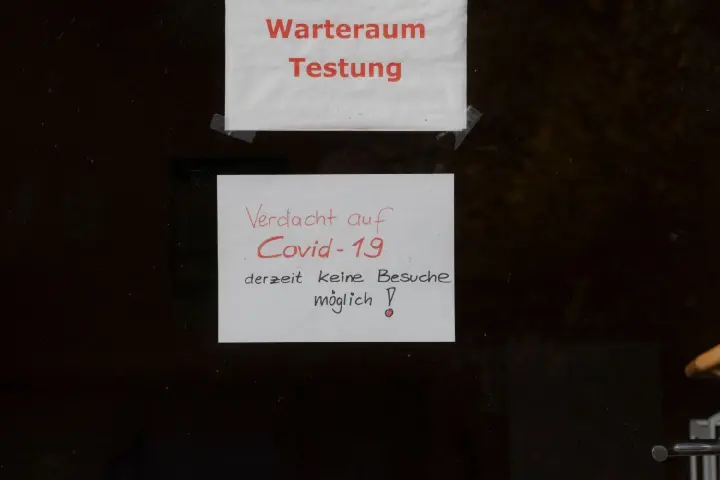 Warteraum
Testung
Verdacht auf
Covid-19
derzeit keine Besuche
möglich !